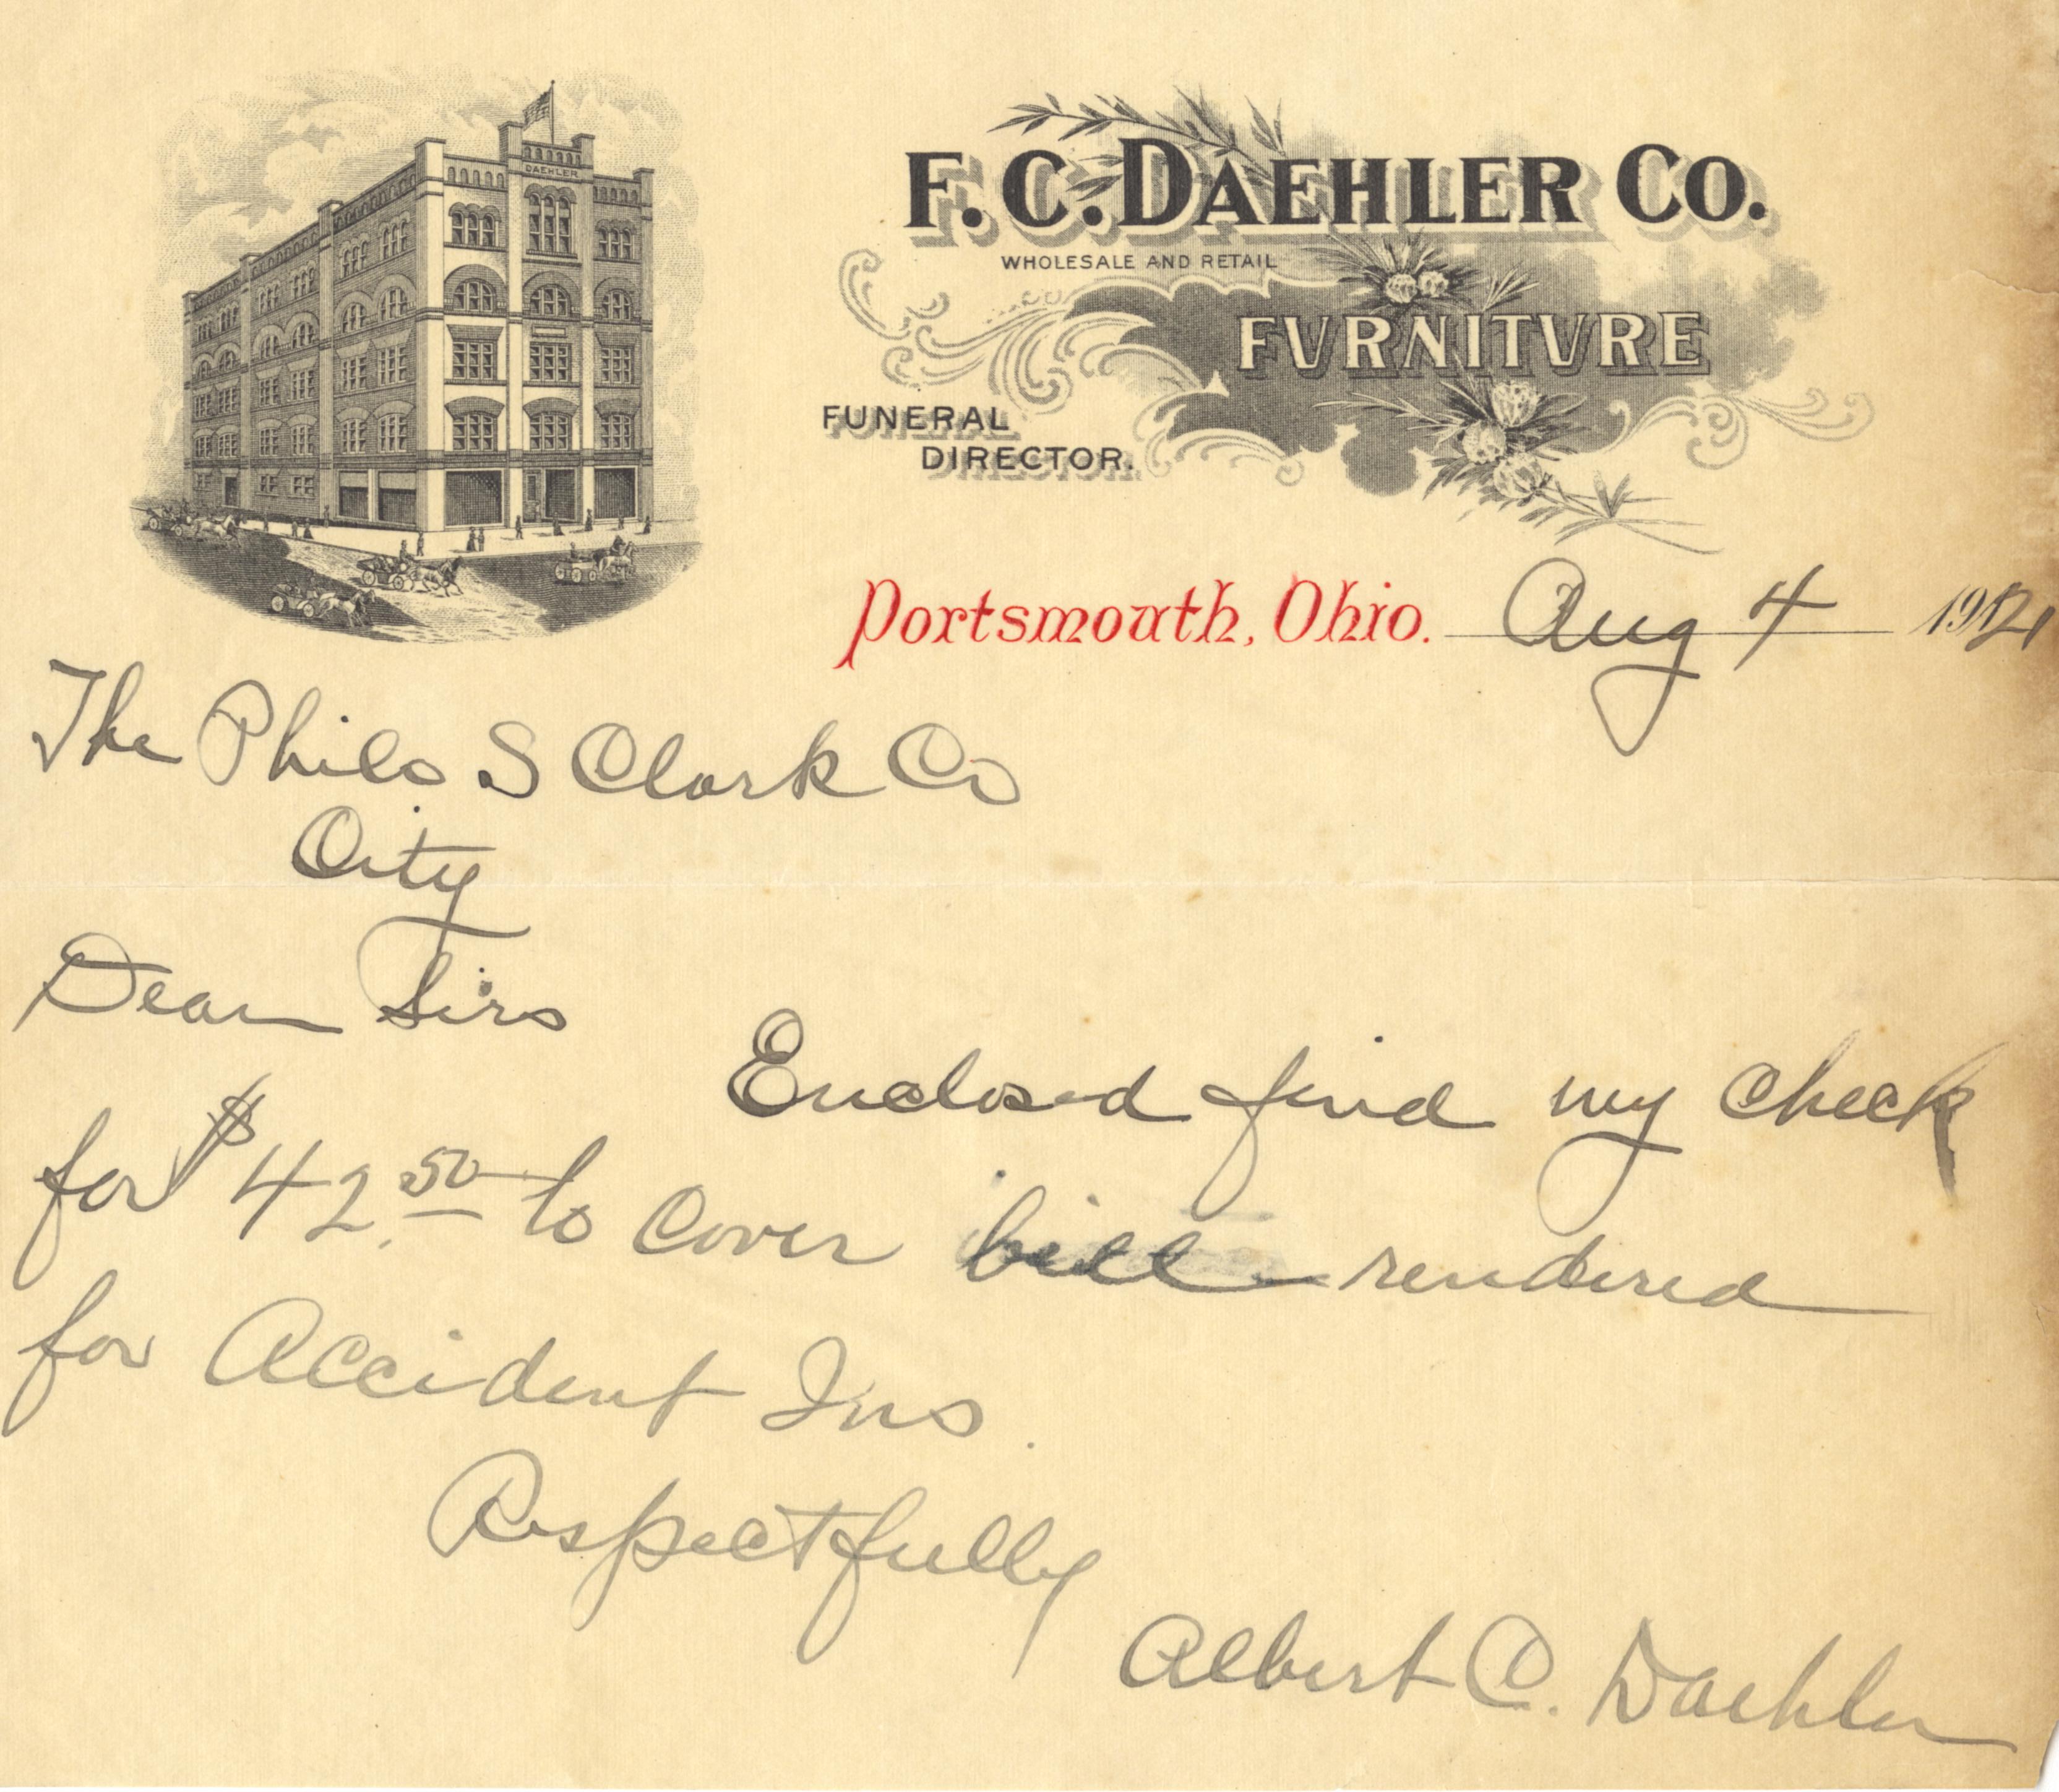 DAEHLER
F. C. DAEHLER CO.
WHOLESALE AND RETAIL
FURNITURE
FUNERAL
DIRECTOR.
Portsmouth, Ohio. Aug 4 1921
The Philo S Clark Co
City
Dear Sirs
Enclosed find my check
for $42.50 to cover bill rendered
for Accident Ins.
Respectfully
Albert C. Daehler